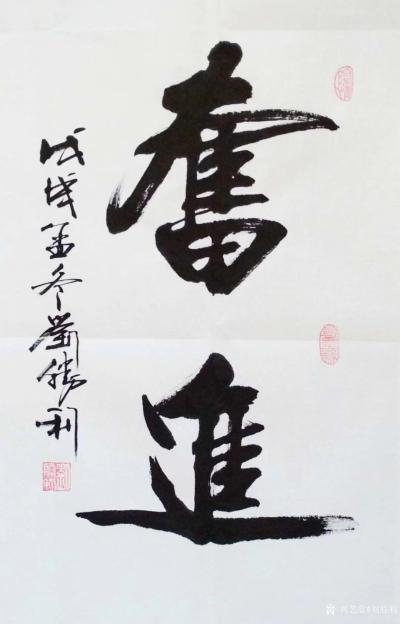 奮進
戊戌孟冬劉勝利